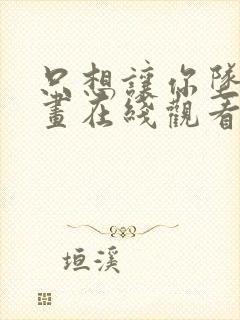 只想讓你墜
畫在綫觀看
垣溪